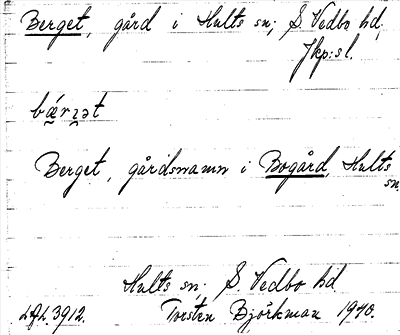 Berget, gård i Hults sn; S. Vedbo hd,
Jkp:sl.
bǽrʒət
Berget, gårdsnamn i Bogård, Hults
sn.
Hults sn. S. Vedbo hd.
L.f.L. 3912. Torsten Björkman 1940.